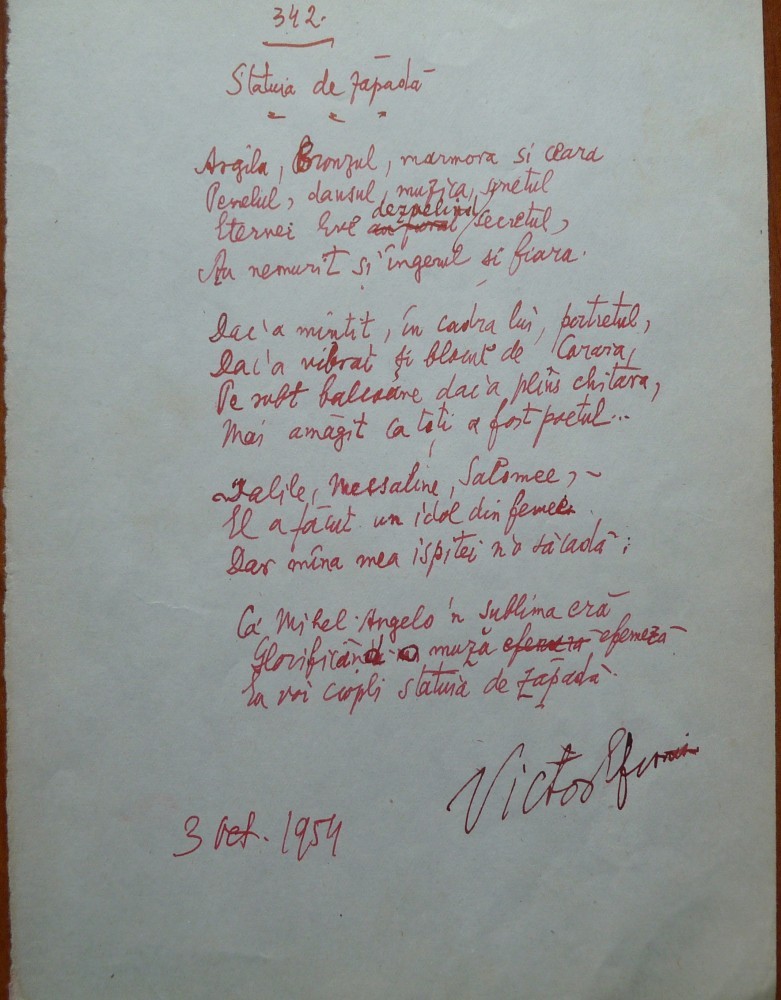 342.
Statuia de zăpadă
Argila, Bronzul, marmora si ceara
Penelul, dansul, muzica, sonetul
Eternei Eve dezvelind secretul,
Au nemurit și îngerul si fiara.
Dac'a mințit, în cadra lui, portretul,
Dac'a vibrat și blocul de Carara,
Pe subt balcoane dac'a plîns chitara,
Mai amăgit ca toți a fost poetul...
Dalile, Messaline, Salomee, -
El a făcut un idol din femee.
Dar mîna mea ispitei n'o să cadă:
Ca Mihel-Angelo 'n sublima eră
Glorificând muză efemeră
Eu voi ciopli statuia de zăpadă.
Victor Eftimiu
3 Oct. 1954